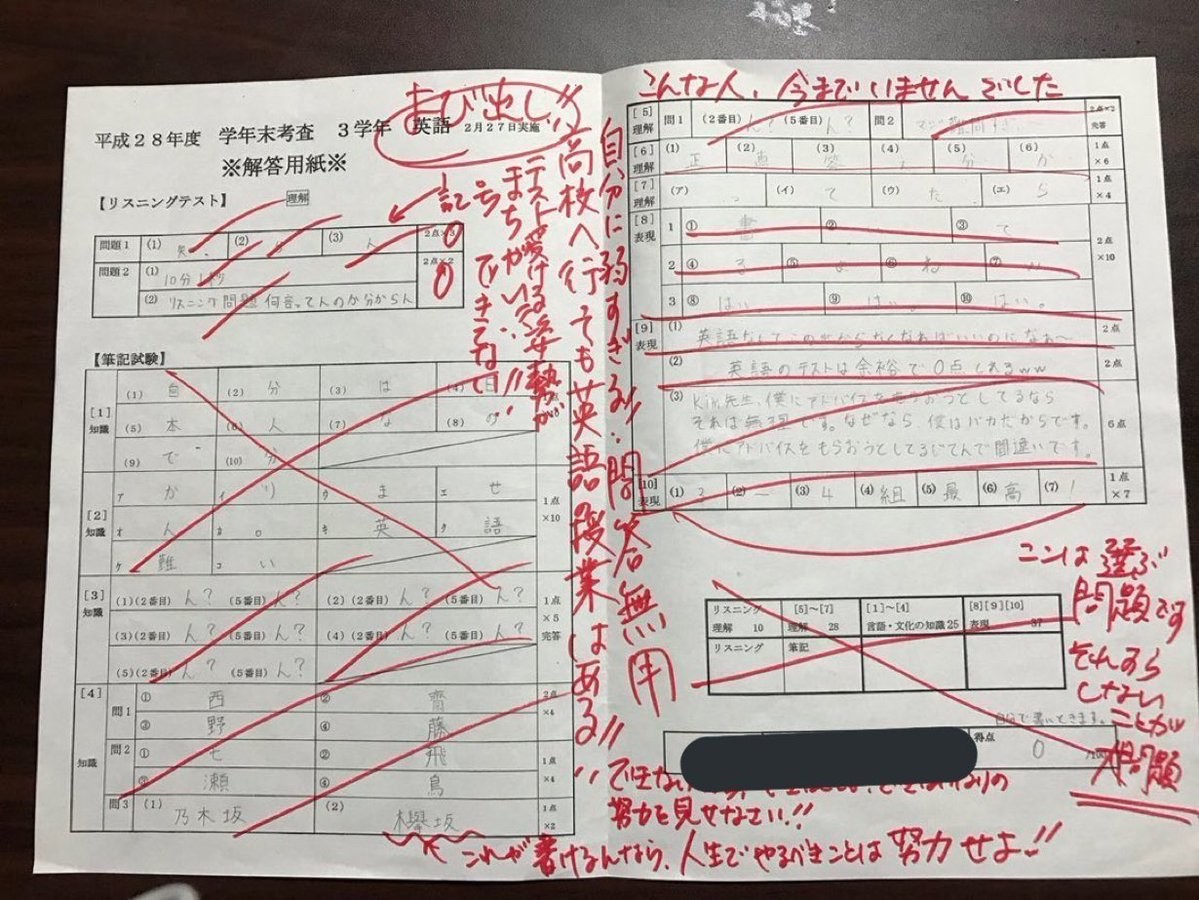 よび出し!!
平成28年度 学年末考査 3学年 英語 2月27日実施
※解答用紙※
【リスニングテスト】 理解
問題1 (1) 笑、 (2) (3) ん 2点×3 0
問題2 (1) 10分1秒 2点×2 0
(2) リスニング問題何言ってんのか分からん
【筆記試験】
[1] 知識
(1) 自 (2) 分 (3) は (4) 日
(5) 本 (6) 人 (7) な (8) の
(9) で (10) 分
[2] 知識
ア か イ り ウ ま エ せ 1点×10
オ 人 カ 。 キ 英 ク 語
ケ 難 コ い
[3] 知識
(1)(2番目) ん? (5番目) ん? (2)(2番目) ん? (5番目) ん? 1点×5 完答
(3)(2番目) ん? (5番目) ん? (4)(2番目) ん? (5番目) ん?
(5)(2番目) ん? (5番目) ん?
[4] 知識
問1 ① 西 ② 齋 2点×4
③ 野 ④ 藤
問2 ① 七 ② 飛 1点×4
③ 瀬 ④ 鳥
問3 (1) 乃木坂 (2) 欅坂 1点×2
記号
まちがい
テストを受ける姿勢が
できてない!!
高校へ行っても英語授業はある!!
自分に弱すぎる!!問答無用
こんな人、今までいませんでした
[5] 理解 問1 (2番目) ん? (5番目) ん? 問2 マジ難問すぎ 2点×2 完答
[6] 理解 (1) 正 (2) 直 (3) 笑 (4) (5) 分 (6) か 1点×6
[7] 理解 (ア) っ (イ) て (ウ) た (エ) ら 1点×4
[8] 表現 1 ① 書 ② ③ て 2点×10
2 ④ る ⑤ よ ⑥ ね ⑦ い
3 ⑧ はい ⑨ はい。 ⑩ はい。
[9] 表現 (1) 英語なんてこの世からなくなればいいのになぁ〜 2点
(2) 英語のテストは余裕で0点とれるww 2点
(3) 先生、僕にアドバイスをもらおうとしてるなら
それは無理です。なぜなら 僕はバカだからです。
僕にアドバイスをもらおうとしてるじてんで間違いです。 6点
[10] 表現 (1) 3 (2) 一 (3) 4 (4) 組 (5) 最 (6) 高 (7) ! 1点×7
ここは選ぶ
問題です
それすら
しない
ことが
大問題
リスニング [5]~[7] [1]~[4] [8][9][10]
理解 10 理解 28 言語・文化の知識 25 表現 37
リスニング 筆記
自分で書いときます。
得点 0 /100
できない
なりの
努力を見せなさい!!
これが書けるんなら、人生でやるべきことは努力せよ!!